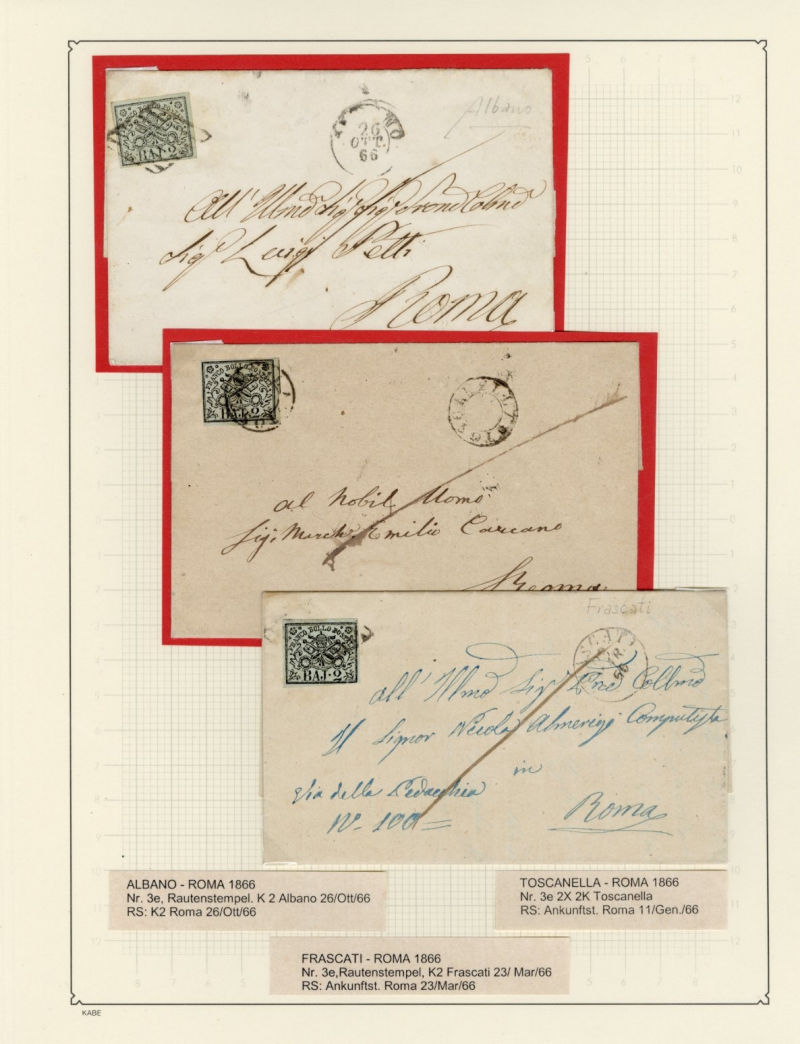 FRANCO BOLLO POSTALE
BAJ·2
26
OTT.
66
Albano
All'
Sig.
Luigi Petti
Roma
FRANCO BOLLO POSTALE
BAJ·2
al Nobil Uomo
Sig. March. Emilio Carcano
Roma
Frascati
FRANCO BOLLO POSTALE
BAJ·2
all' Illmo Sig. Pne Collmo
Il Signor Nicola Almerigi Computista
in
Via della Pedacchia
N. 100 =
Roma
ALBANO - ROMA 1866
Nr. 3e, Rautenstempel. K 2 Albano 26/Ott/66
RS: K2 Roma 26/Ott/66
TOSCANELLA - ROMA 1866
Nr. 3e 2X 2K Toscanella
RS: Ankunftst. Roma 11/Gen./66
FRASCATI - ROMA 1866
Nr. 3e,Rautenstempel, K2 Frascati 23/ Mar/66
RS: Ankunftst. Roma 23/Mar/66
KABE